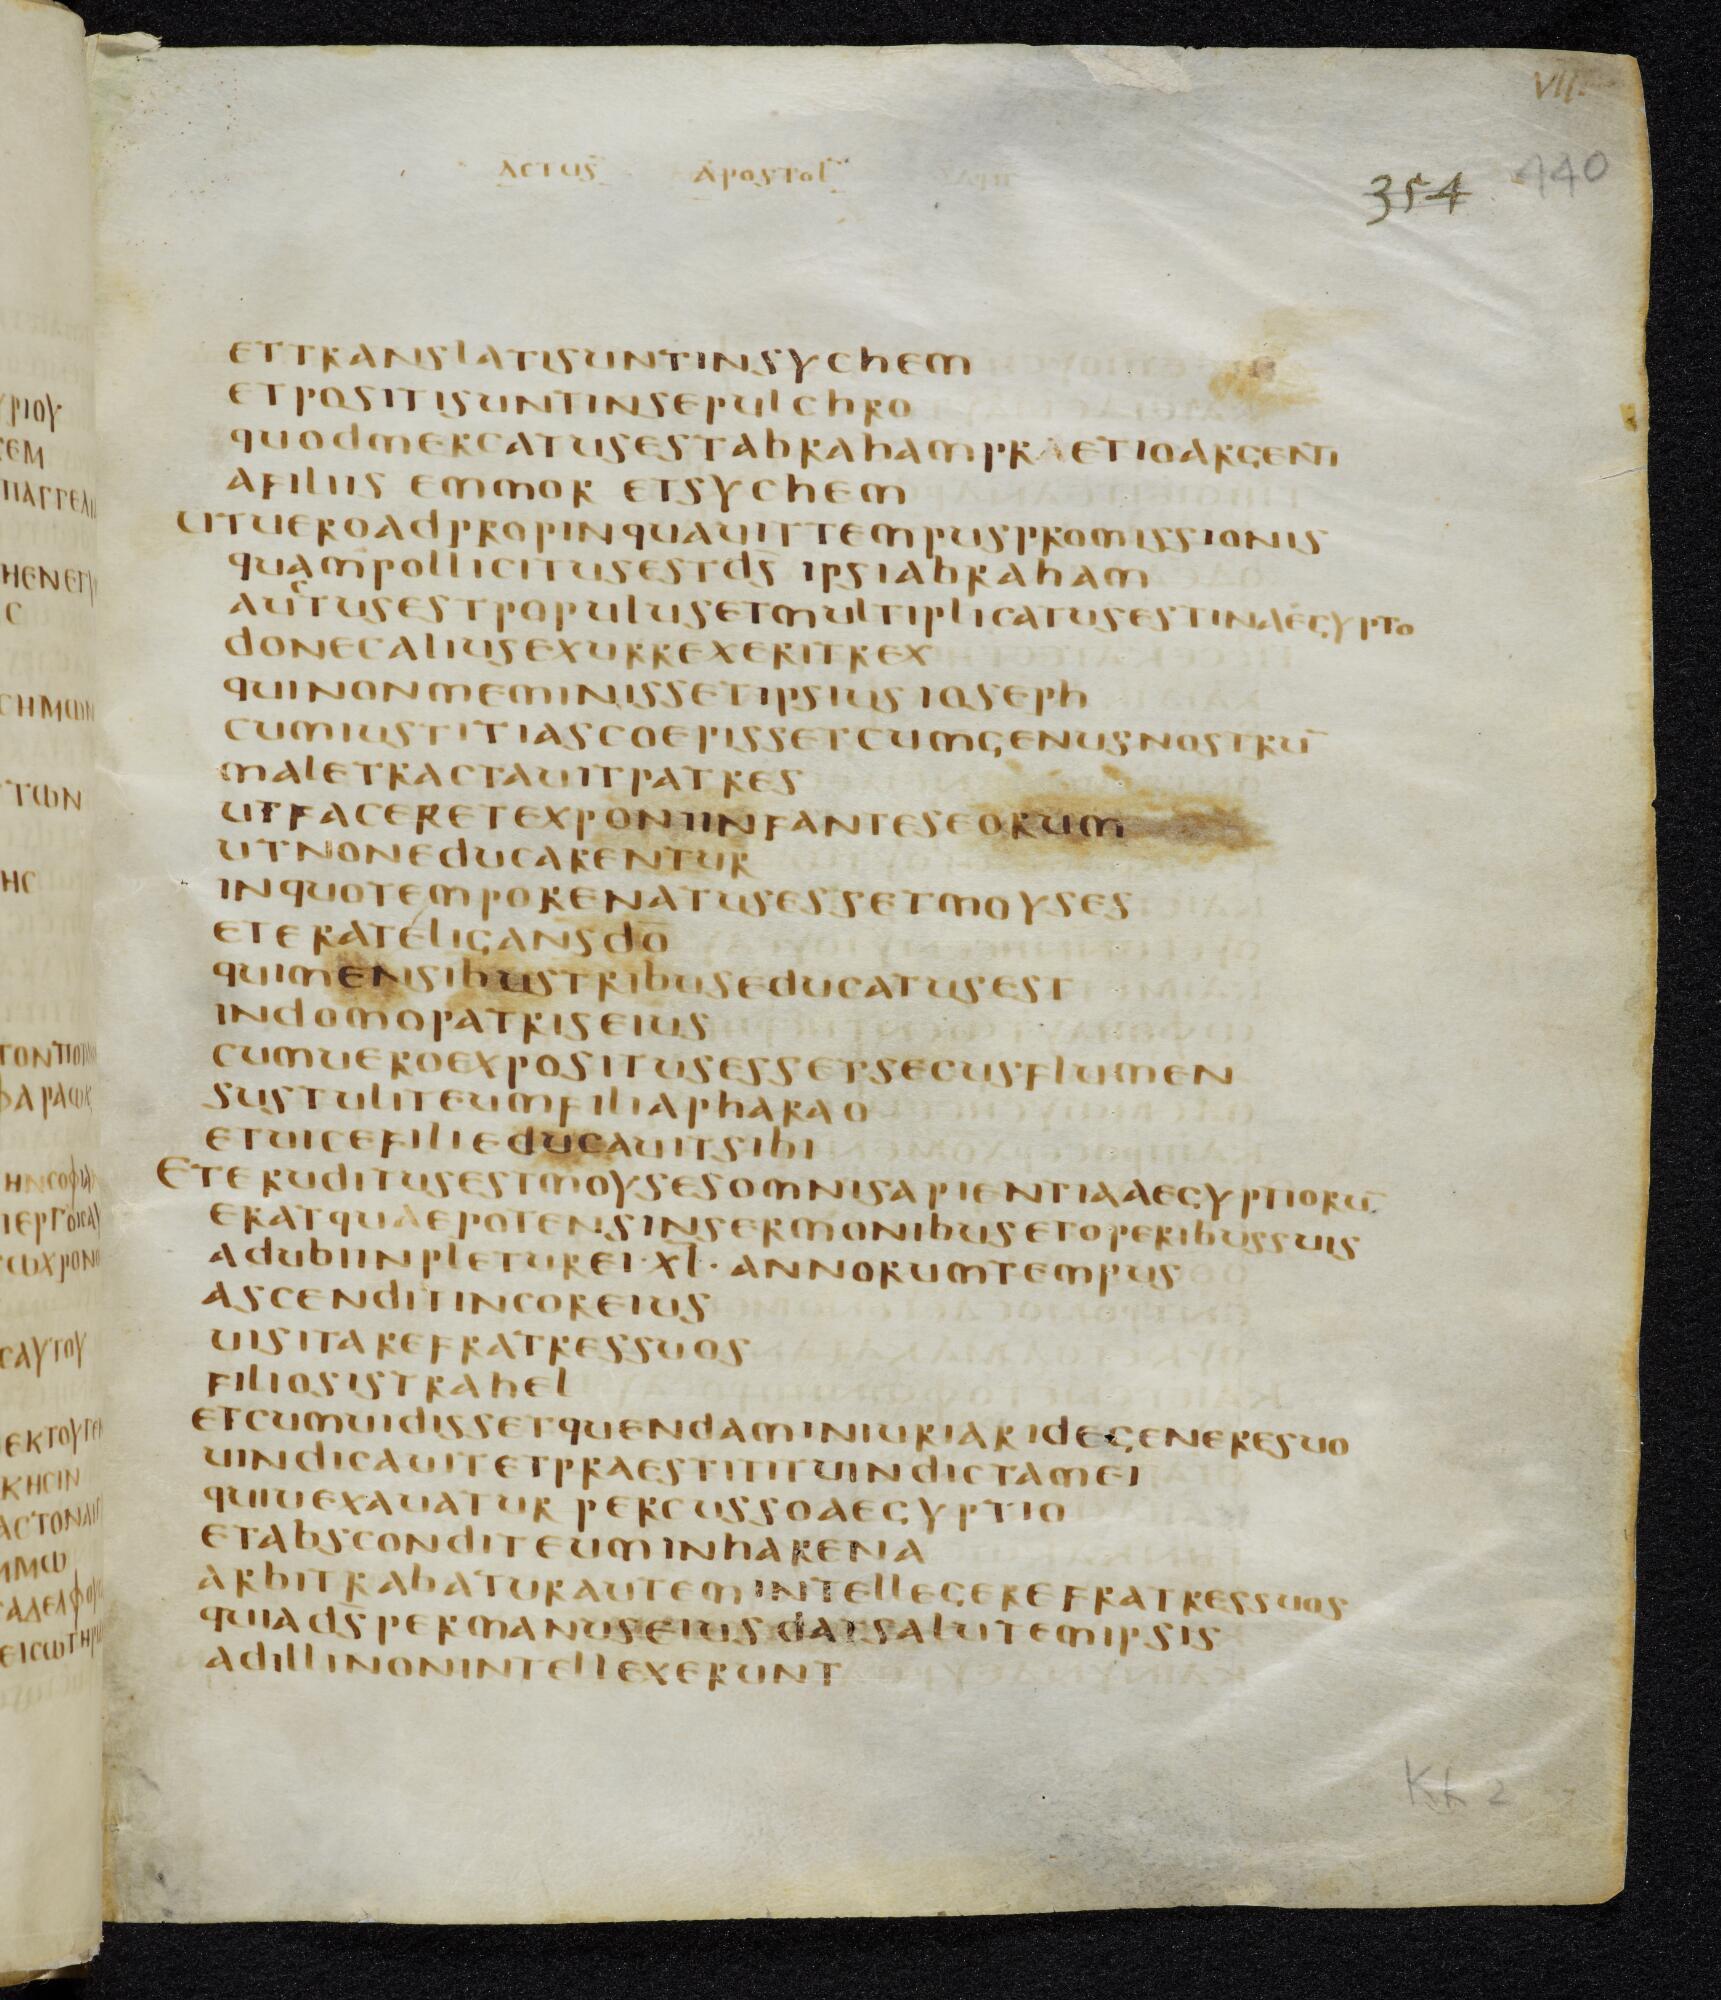 VII
ACTUS APOSTOL
354 440
ETTRANSLATISUNTINSYCHEM
ETPOSITISUNTINSEPULCHRO
QUODMERCATUSESTABRAHAMPRAETIOARGENTI
AFILIIS EMMOR ETSYCHEM
UTUEROADPROPINQUAUITTEMPUSPROMISSIONIS
QUAMPOLLICITUSESTDS̅ IPSIABRAHAM
AUCTUSESTPOPULUSETMULTIPLICATUSESTINAEGYPTO
DONECALIUSEXURREXERITREX
QUINONMEMINISSETIPSIUS IOSEPH
CUMIUSTITIASCOEPISSETCUMGENUSNOSTRU̅
MALETRACTAUITPATRES
UTFACERETEXPONIINFANTESEORUM
UTNONEDUCARENTUR
INQUOTEMPORENATUSESSETMOYSES
ETERATELIGANSDO̅
QUIMENSIBUSTRIBUSEDUCATUSEST
INDOMOPATRISEIUS
CUMUEROEXPOSITUSESSETSECUSFLUMEN
SUSTULITEUMFILIAPHARAO
ETUICEFILIEDUCAUITSIBI
ETERUDITUSESTMOYSESOMNISAPIENTIAAEGYPTIORU̅
ERATQUAEPOTENSINSERMONIBUSETOPERIBUSSUIS
ADUBIINPLETUREI·XL̅·ANNORUMTEMPUS
ASCENDITINCOREIUS
UISITAREFRATRESSUOS
FILIOSISTRAHEL
ETCUMUIDISSETQUENDAMINIURIARIDEGENERESUO
UINDICAUITETPRAESTITITUINDICTAMEI
QUIUEXAUATUR PERCUSSOAEGYPTIO
ETABSCONDITEUMINHARENA
ARBITRABATURAUTEMINTELLEGEREFRATRESSUOS
QUIADS̅PERMANUSEIUSDATSALUTEMIPSIS
ADILLINONINTELLEXERUNT
Kk 2